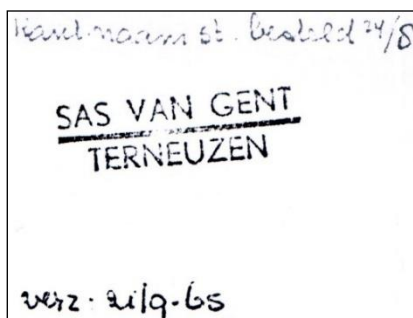 st. besteld 24/8
SAS VAN GENT
TERNEUZEN
verz. 21/9-65